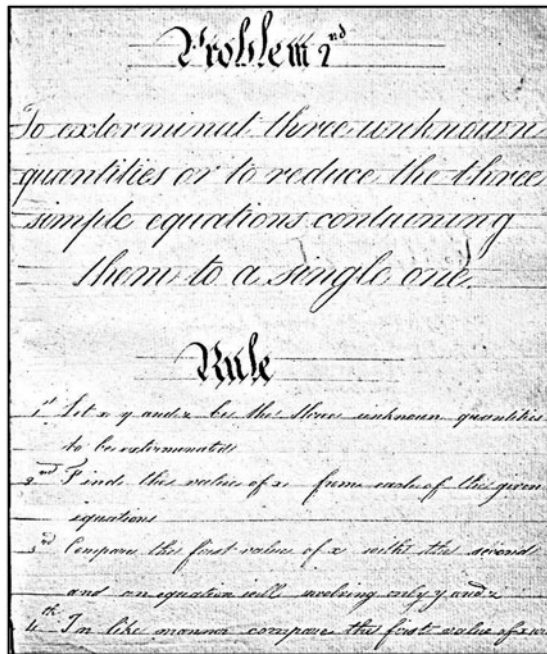 Problem 2nd
To exterminat three unknown
quantities or to reduce the three
simple equations containing
them to a single one.
Rule
1st Let x y and z be the three unknown quantities
to be exterminated
2nd Find the values of x from each of the given
equations
3rd Compare the first value of x with the second
and an equation will involving only y and z
4th In like manner compare the first value of x